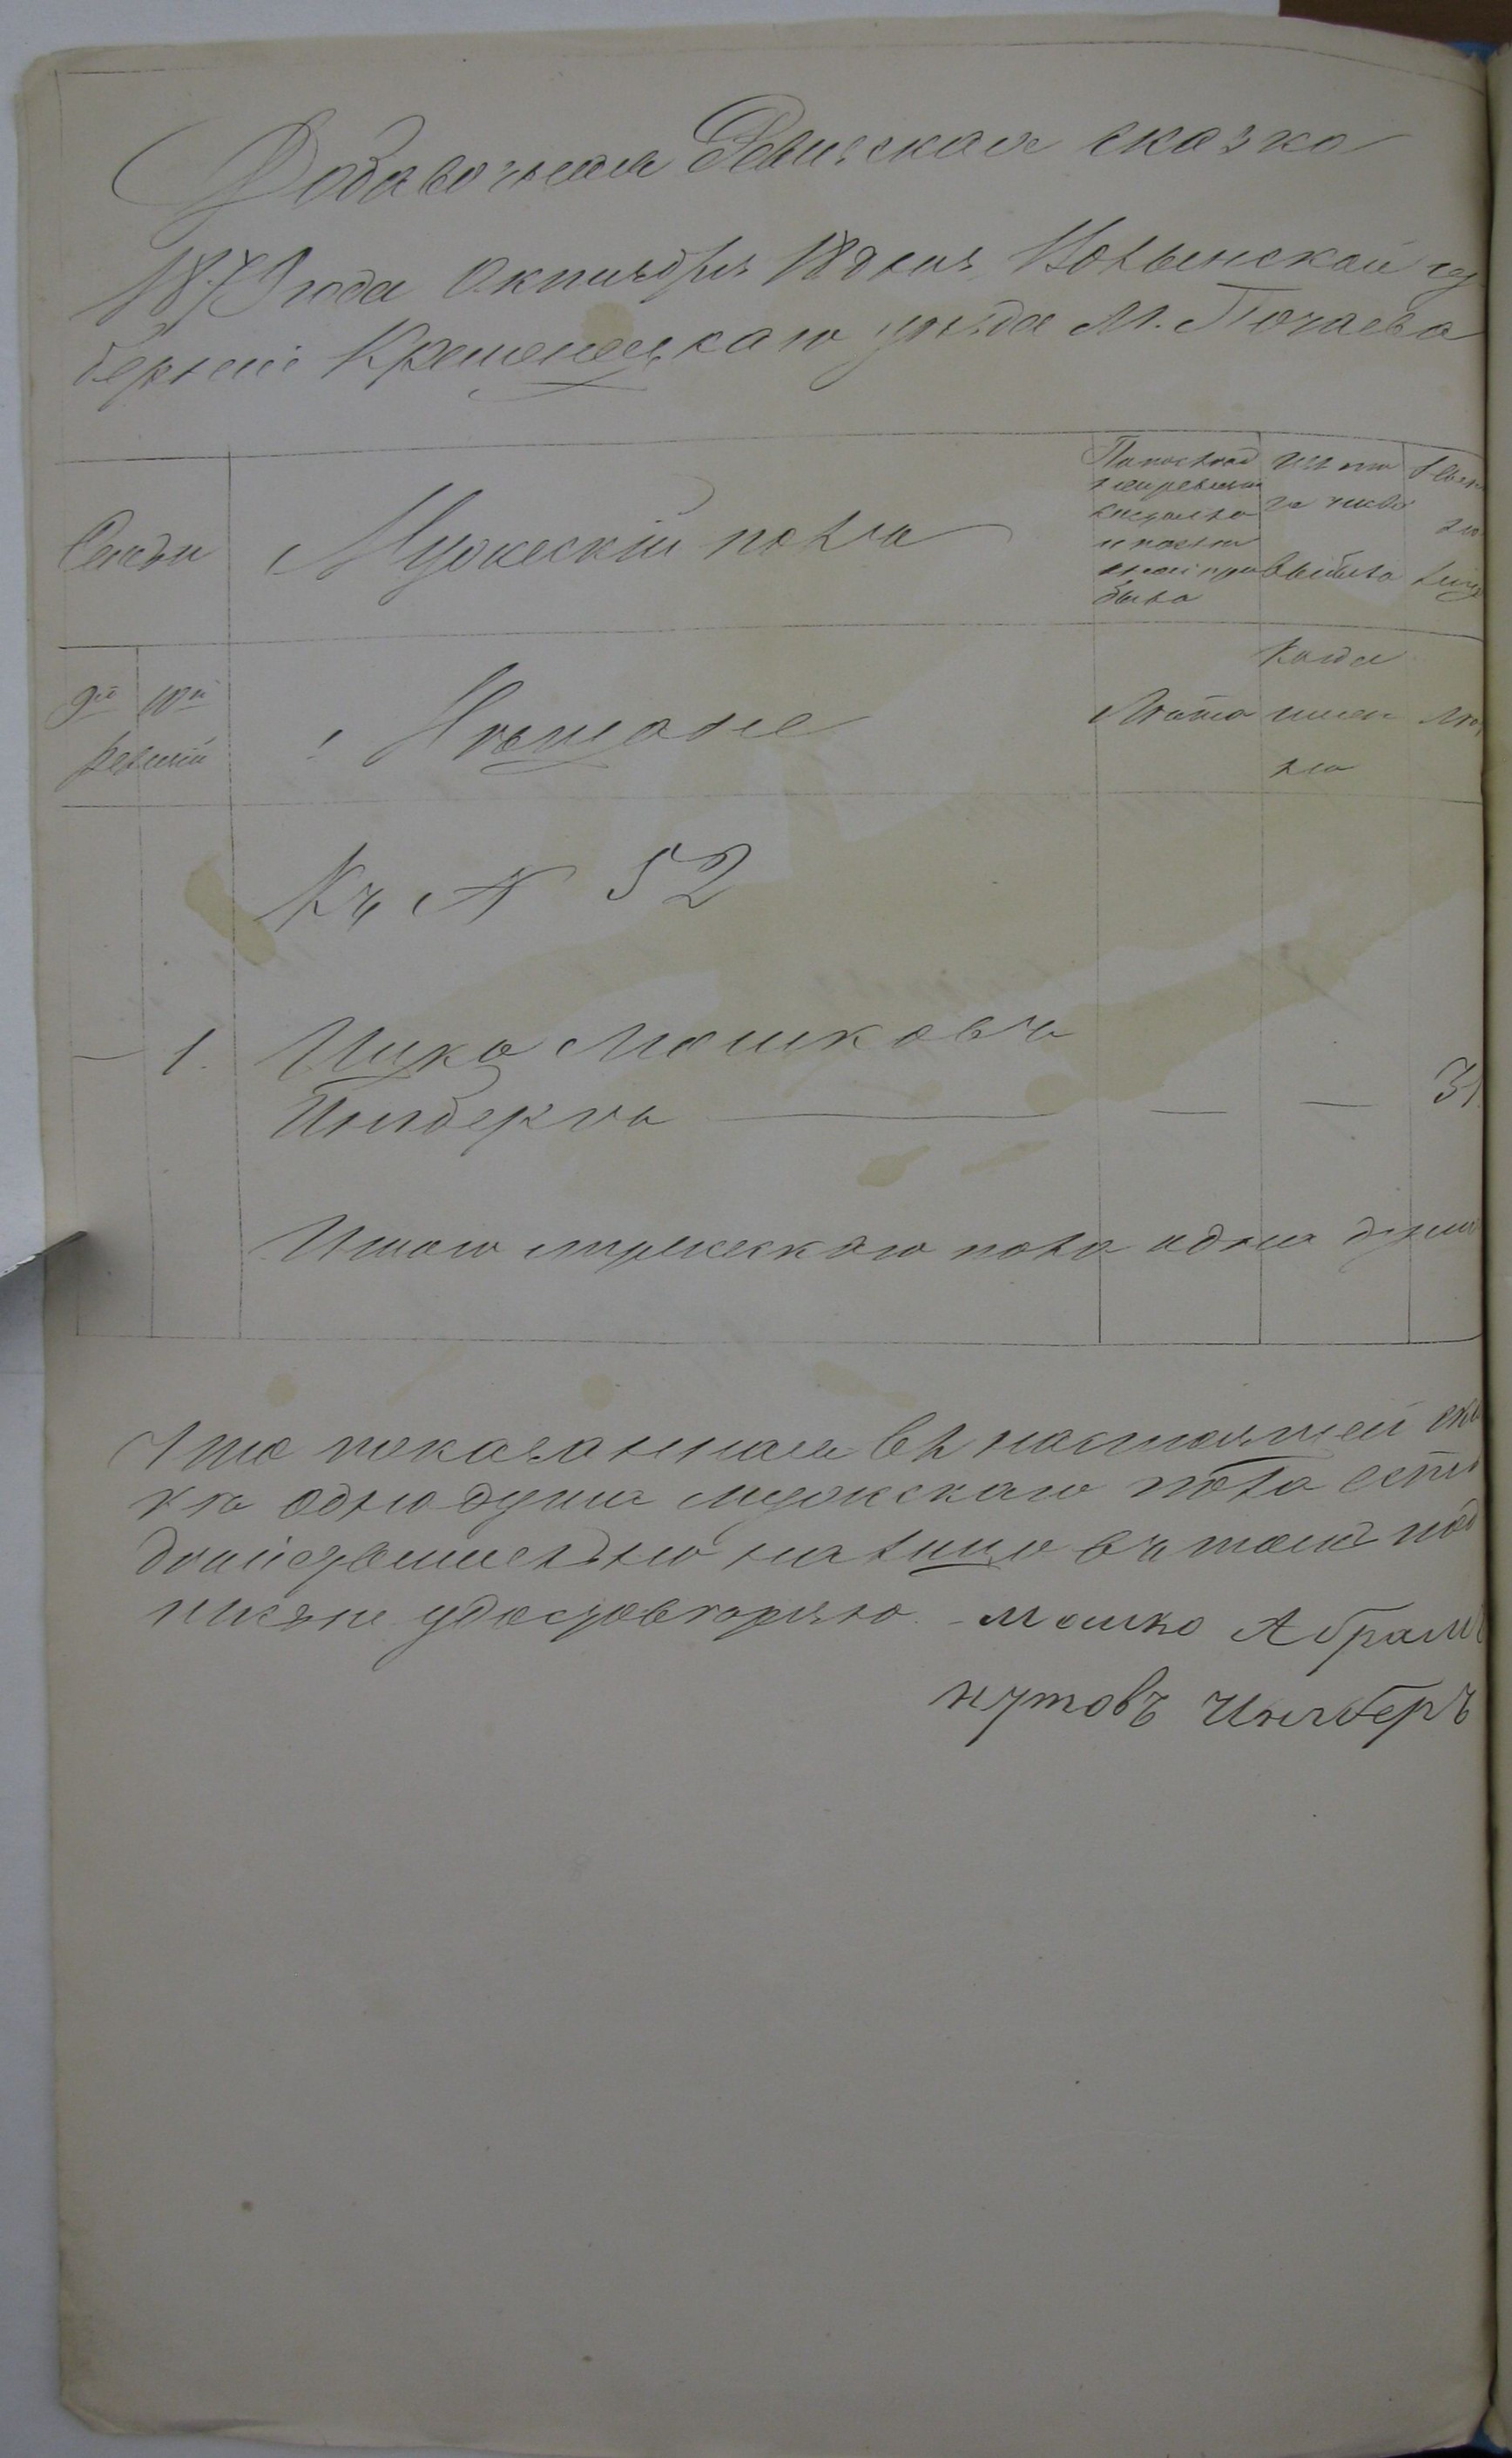 Добавочная Ревизская сказка
187 года Октября 18 дня Волынской гу
берніи Кременецкаго уѣзда М. Почаева
Семьи
Мужескій полъ
По послѣд
ней ревизіи
состояло
и послѣ
оной при
было
Изъ то
го числа
выбыло
9й 10й
ревизій
Мѣщане
Лѣта
Когда
имен
но
Къ № 52
1. Ицко Мошковъ
Инзберъ — — — 31
Итого мужескаго пола одна душа
Что показанная въ настоящей ска
кѣ одна душа мужескаго пола есть
дѣйствительно на лицо въ томъ под
писью удостовѣряю. Мошко Абрам
нутовъ Инзберъ